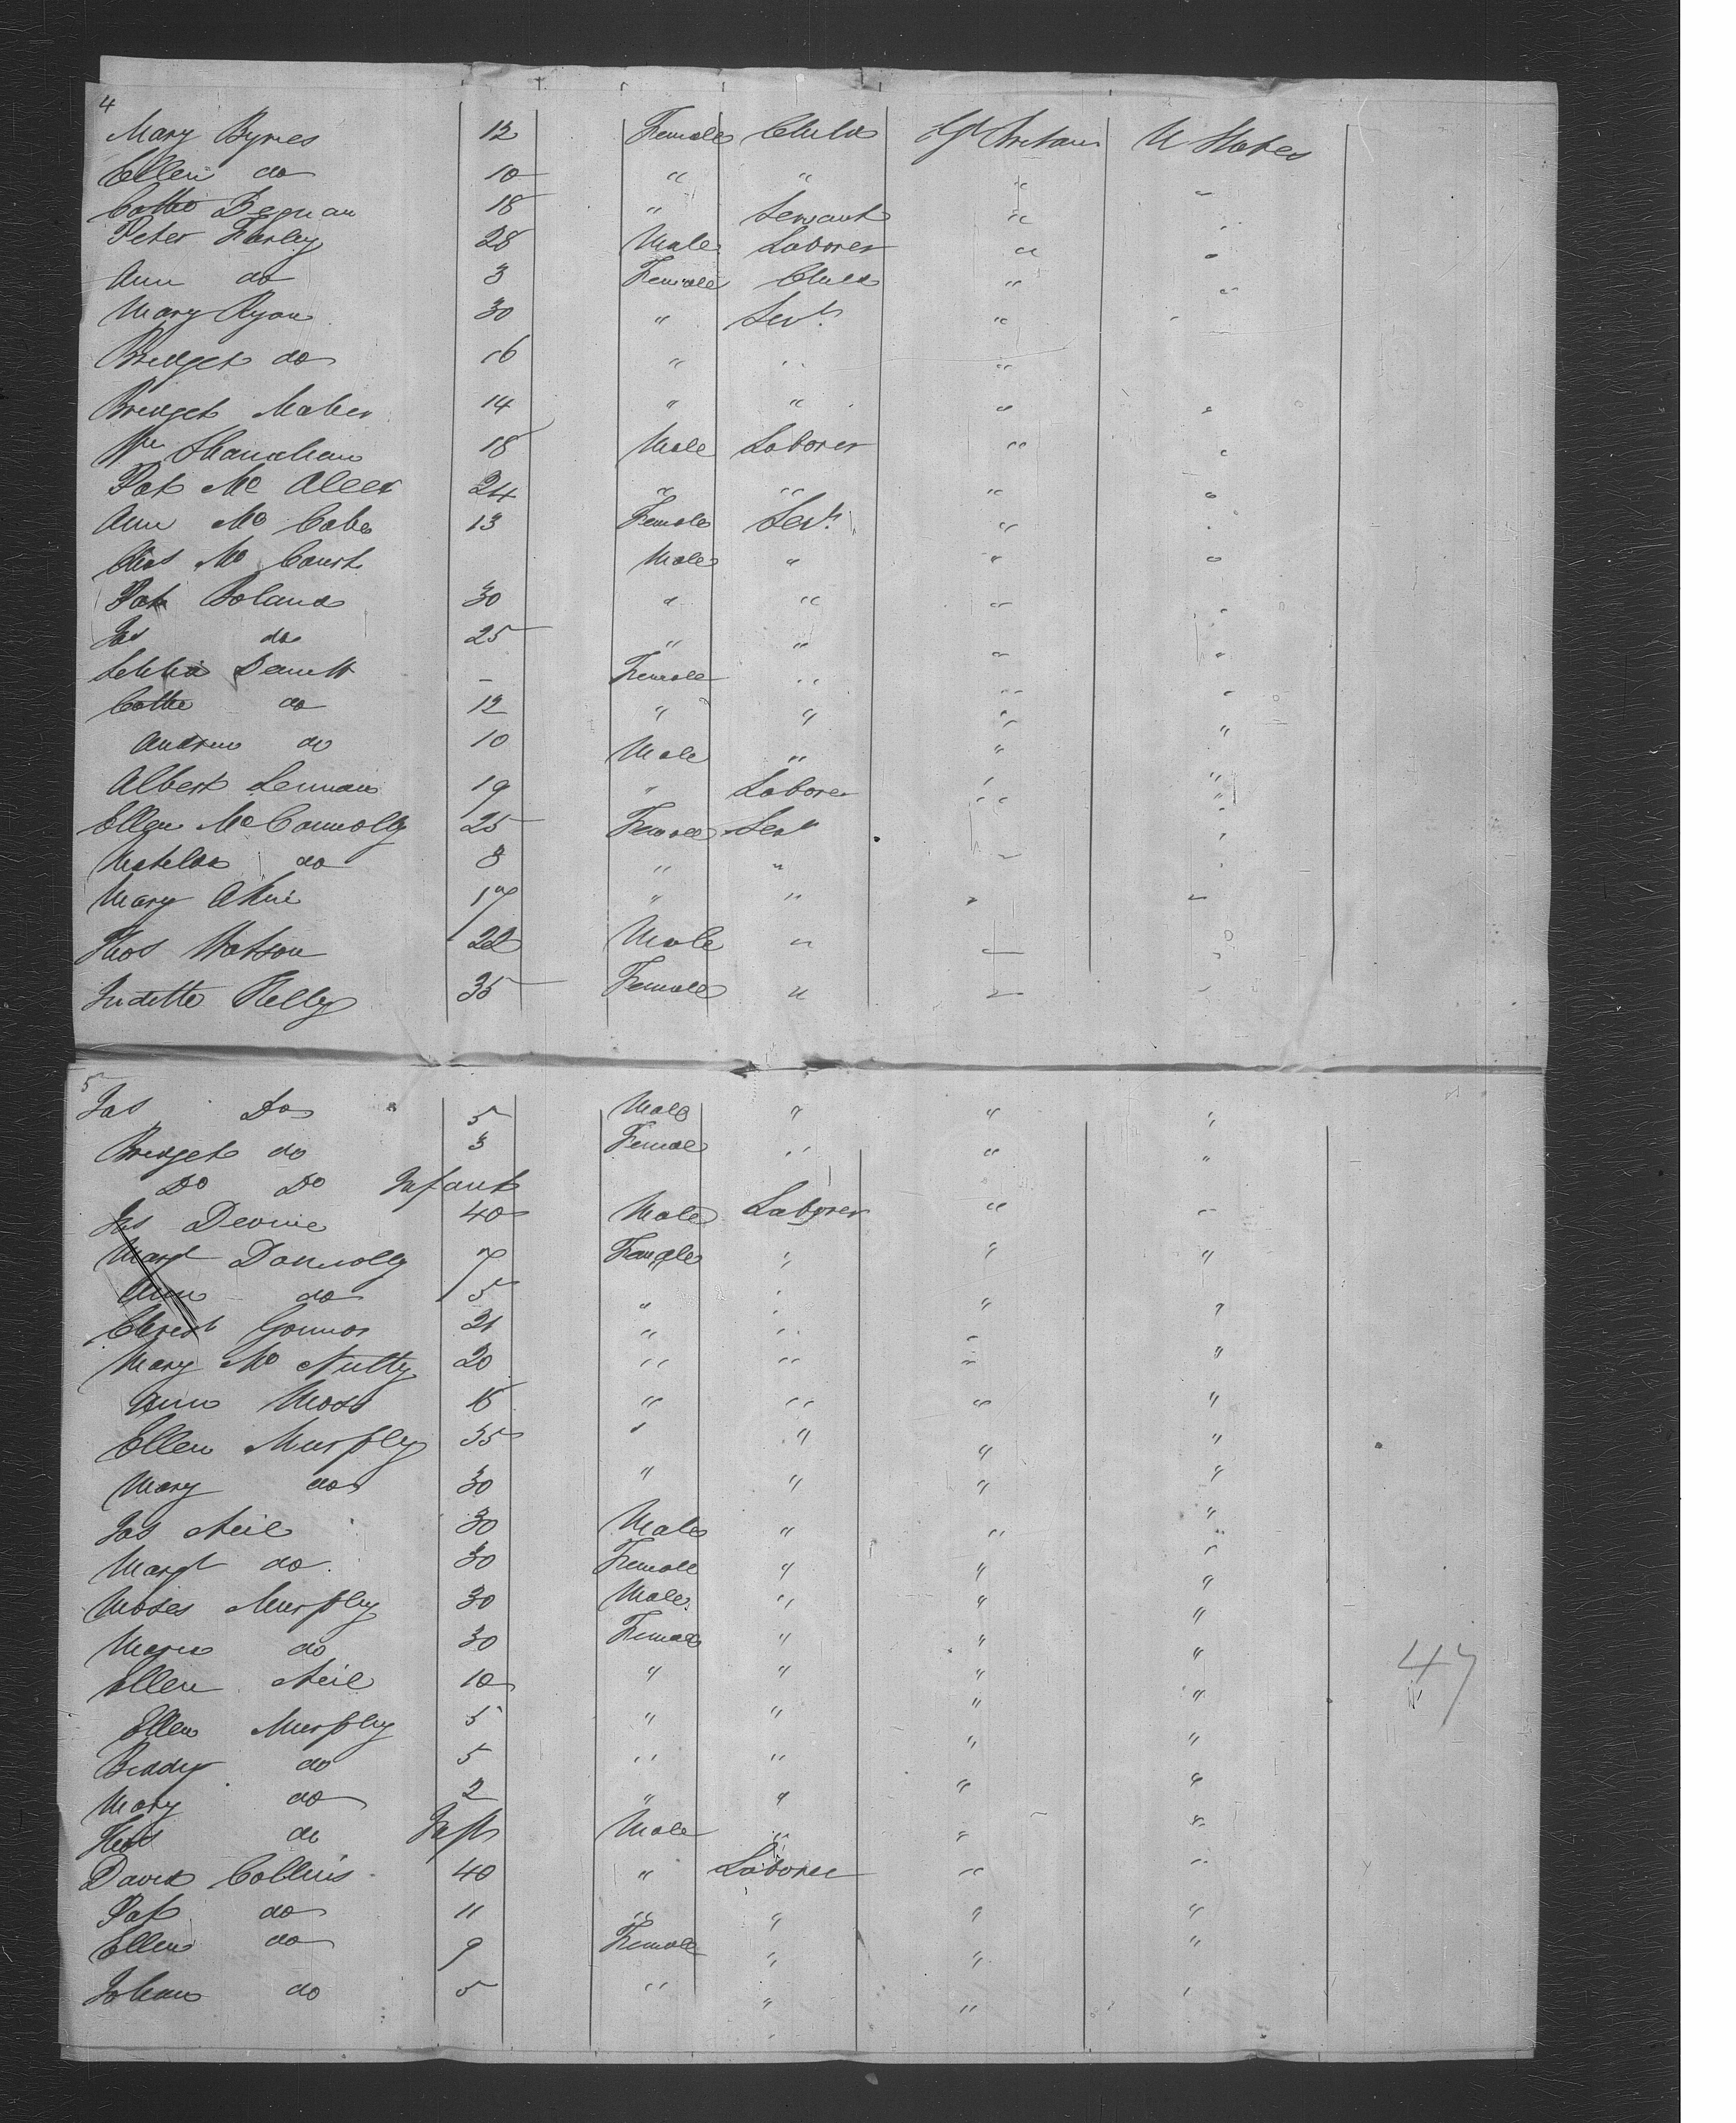 4
Mary Byrnes 12 Female Child Gt Britain U States
Ellen do 10 " " " "
Cathe Degnan 18 " Servant " "
Peter Farley 28 Male Laborer " "
Ann do 3 Female Child " "
Mary Ryan 30 " Servt " "
Bridget do 16 " " "
Bridget Maher 14 " " " "
Wm Shanahan 18 Male Laborer " "
Pat Mc Aleer 24 " " " "
Ann Mc Cabe 13 Female Servt " "
Chas Mc Court Male " " "
Pat Boland 30 " " " "
Jas do 25 " " " "
Demott - Female " " "
Cathe do 12 " " " "
Andrew do 10 Male " " "
Albert Lennan 19 " Laborer " "
Ellen Mc Connolly 25 Female Servt "
Matilda do 8 " " " "
Mary 17 " " " "
Thos Watson 22 Male " " "
Judette Kelly 35 Female " " "
5
Jas Do 5 Male " " "
Bridget do 3 Female " " "
Do Do Infant
Jas Devine 40 Male Laborer " "
Margt Donnolly 7 Female " " "
Ann do 5 " " " "
Christ Gonnor 21 " " " "
Mary Mc Nulty 20 " " " "
Ann Moss 15 " " " "
Ellen Murphy 35 " " " "
Mary do 30 " " " "
Jas Neil 30 Male " " "
Margt do 30 Female " " "
Moses Murphy 30 Male " " "
Maria do 30 Female " " "
Ellen Neil 10 " " " "
Ellen Murphy 5 " " " "
Biddy do 5 " " " "
Mary do 2 " " " "
Thos do Inft Male " " "
David Collins 40 " Laborer " "
Pat do 11 " " " "
Ellen do 9 Female " " "
Johan do 5 " " " "
47